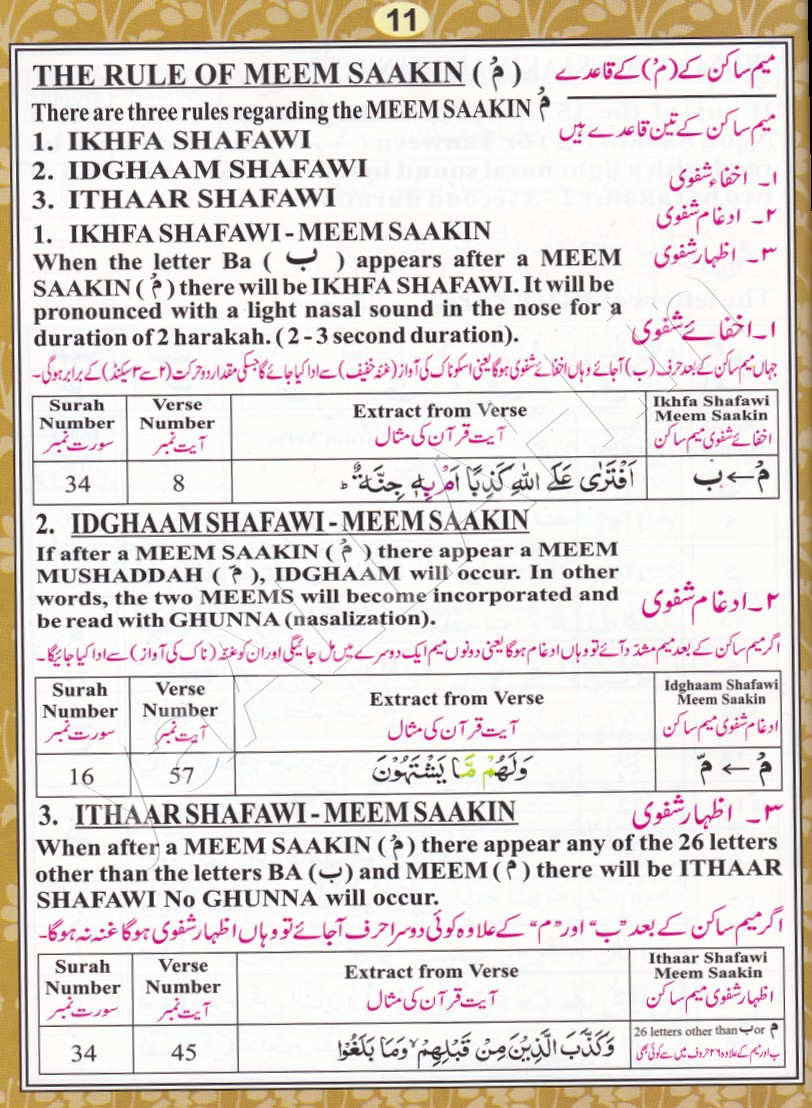 11
THE RULE OF MEEM SAAKIN ( مْ ) میم ساکن کے (مْ) کے قاعدے
There are three rules regarding the MEEM SAAKIN مْ
میم ساکن کے تین قاعدے ہیں
1. IKHFA SHAFAWI
2. IDGHAAM SHAFAWI
3. ITHAAR SHAFAWI
۱۔ اخفاء شفوی
۲۔ ادغام شفوی
۳۔ اظہار شفوی
1. IKHFA SHAFAWI - MEEM SAAKIN
When the letter Ba ( ب ) appears after a MEEM
SAAKIN ( مْ ) there will be IKHFA SHAFAWI. It will be
pronounced with a light nasal sound in the nose for a
duration of 2 harakah. ( 2 - 3 second duration).
۱۔ اخفائے شفوی
جہاں میم ساکن کے بعد حرف (ب) آجائے وہاں اخفائے شفوی ہوگا یعنی اسکو ناک کی آواز (غنہ خفیف) سے ادا کیا جائے گا جسکی مقدار دو حرکت (۲ سے ۳ سیکنڈ) کے برابر ہوگی۔
Surah Number سورت نمبر
Verse Number آیت نمبر
Extract from Verse آیت قرآن کی مثال
Ikhfa Shafawi Meem Saakin اخفائے شفوی میم ساکن
34 8 اَفْتَرٰی عَلَی اللّٰهِ كَذِبًا اَمْ بِهٖ جِنَّةٌ ؕ مْ ← ب
2. IDGHAAM SHAFAWI - MEEM SAAKIN
If after a MEEM SAAKIN ( مْ ) there appear a MEEM
MUSHADDAH ( مّ ), IDGHAAM will occur. In other
words, the two MEEMS will become incorporated and
be read with GHUNNA (nasalization).
۲۔ ادغام شفوی
اگر میم ساکن کے بعد میم مشدّد آئے تو وہاں ادغام ہوگا یعنی دونوں میم ایک دوسرے میں مل جائیگی اور ان کو غنہ (ناک کی آواز) سے ادا کیا جائیگا۔
Surah Number سورت نمبر
Verse Number آیت نمبر
Extract from Verse آیت قرآن کی مثال
Idghaam Shafawi Meem Saakin ادغام شفوی میم ساکن
16 57 وَلَهُمْ مَّا يَشْتَهُوْنَ مْ ← مّ
3. ITHAAR SHAFAWI - MEEM SAAKIN ۳۔ اظہار شفوی
When after a MEEM SAAKIN ( مْ ) there appear any of the 26 letters
other than the letters BA (ب) and MEEM ( م ) there will be ITHAAR
SHAFAWI No GHUNNA will occur.
اگر میم ساکن کے بعد "ب" اور "م" کے علاوہ کوئی دوسرا حرف آجائے تو وہاں اظہار شفوی ہوگا غنہ نہ ہوگا۔
Surah Number سورت نمبر
Verse Number آیت نمبر
Extract from Verse آیت قرآن کی مثال
Ithaar Shafawi Meem Saakin اظہار شفوی میم ساکن
34 45 وَكَذَّبَ الَّذِيْنَ مِنْ قَبْلِهِمْ ۙ وَمَا بَلَغُوْا
26 letters other than ب or م
ب اور میم کے علاوہ ۲۶ حروف میں سے کوئی بھی